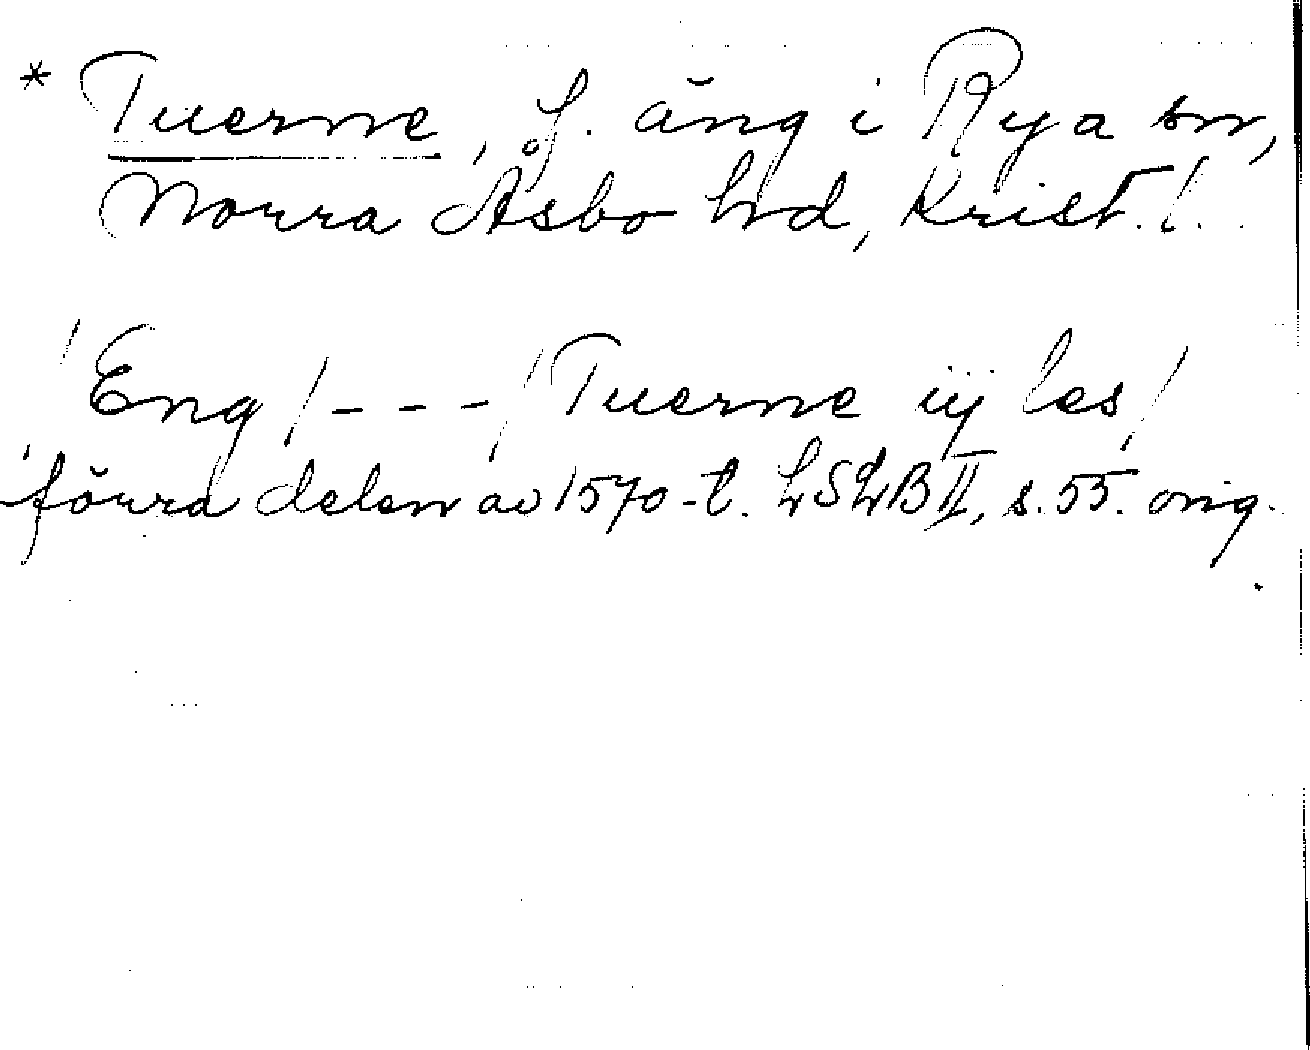 * Tuerne, f. äng i Rya sn,
Norra Åsbo hd, Krist. l.
Eng /---/ Tuerne iij les /
förra delen av 1570-t. LSLB II, s. 55. orig.